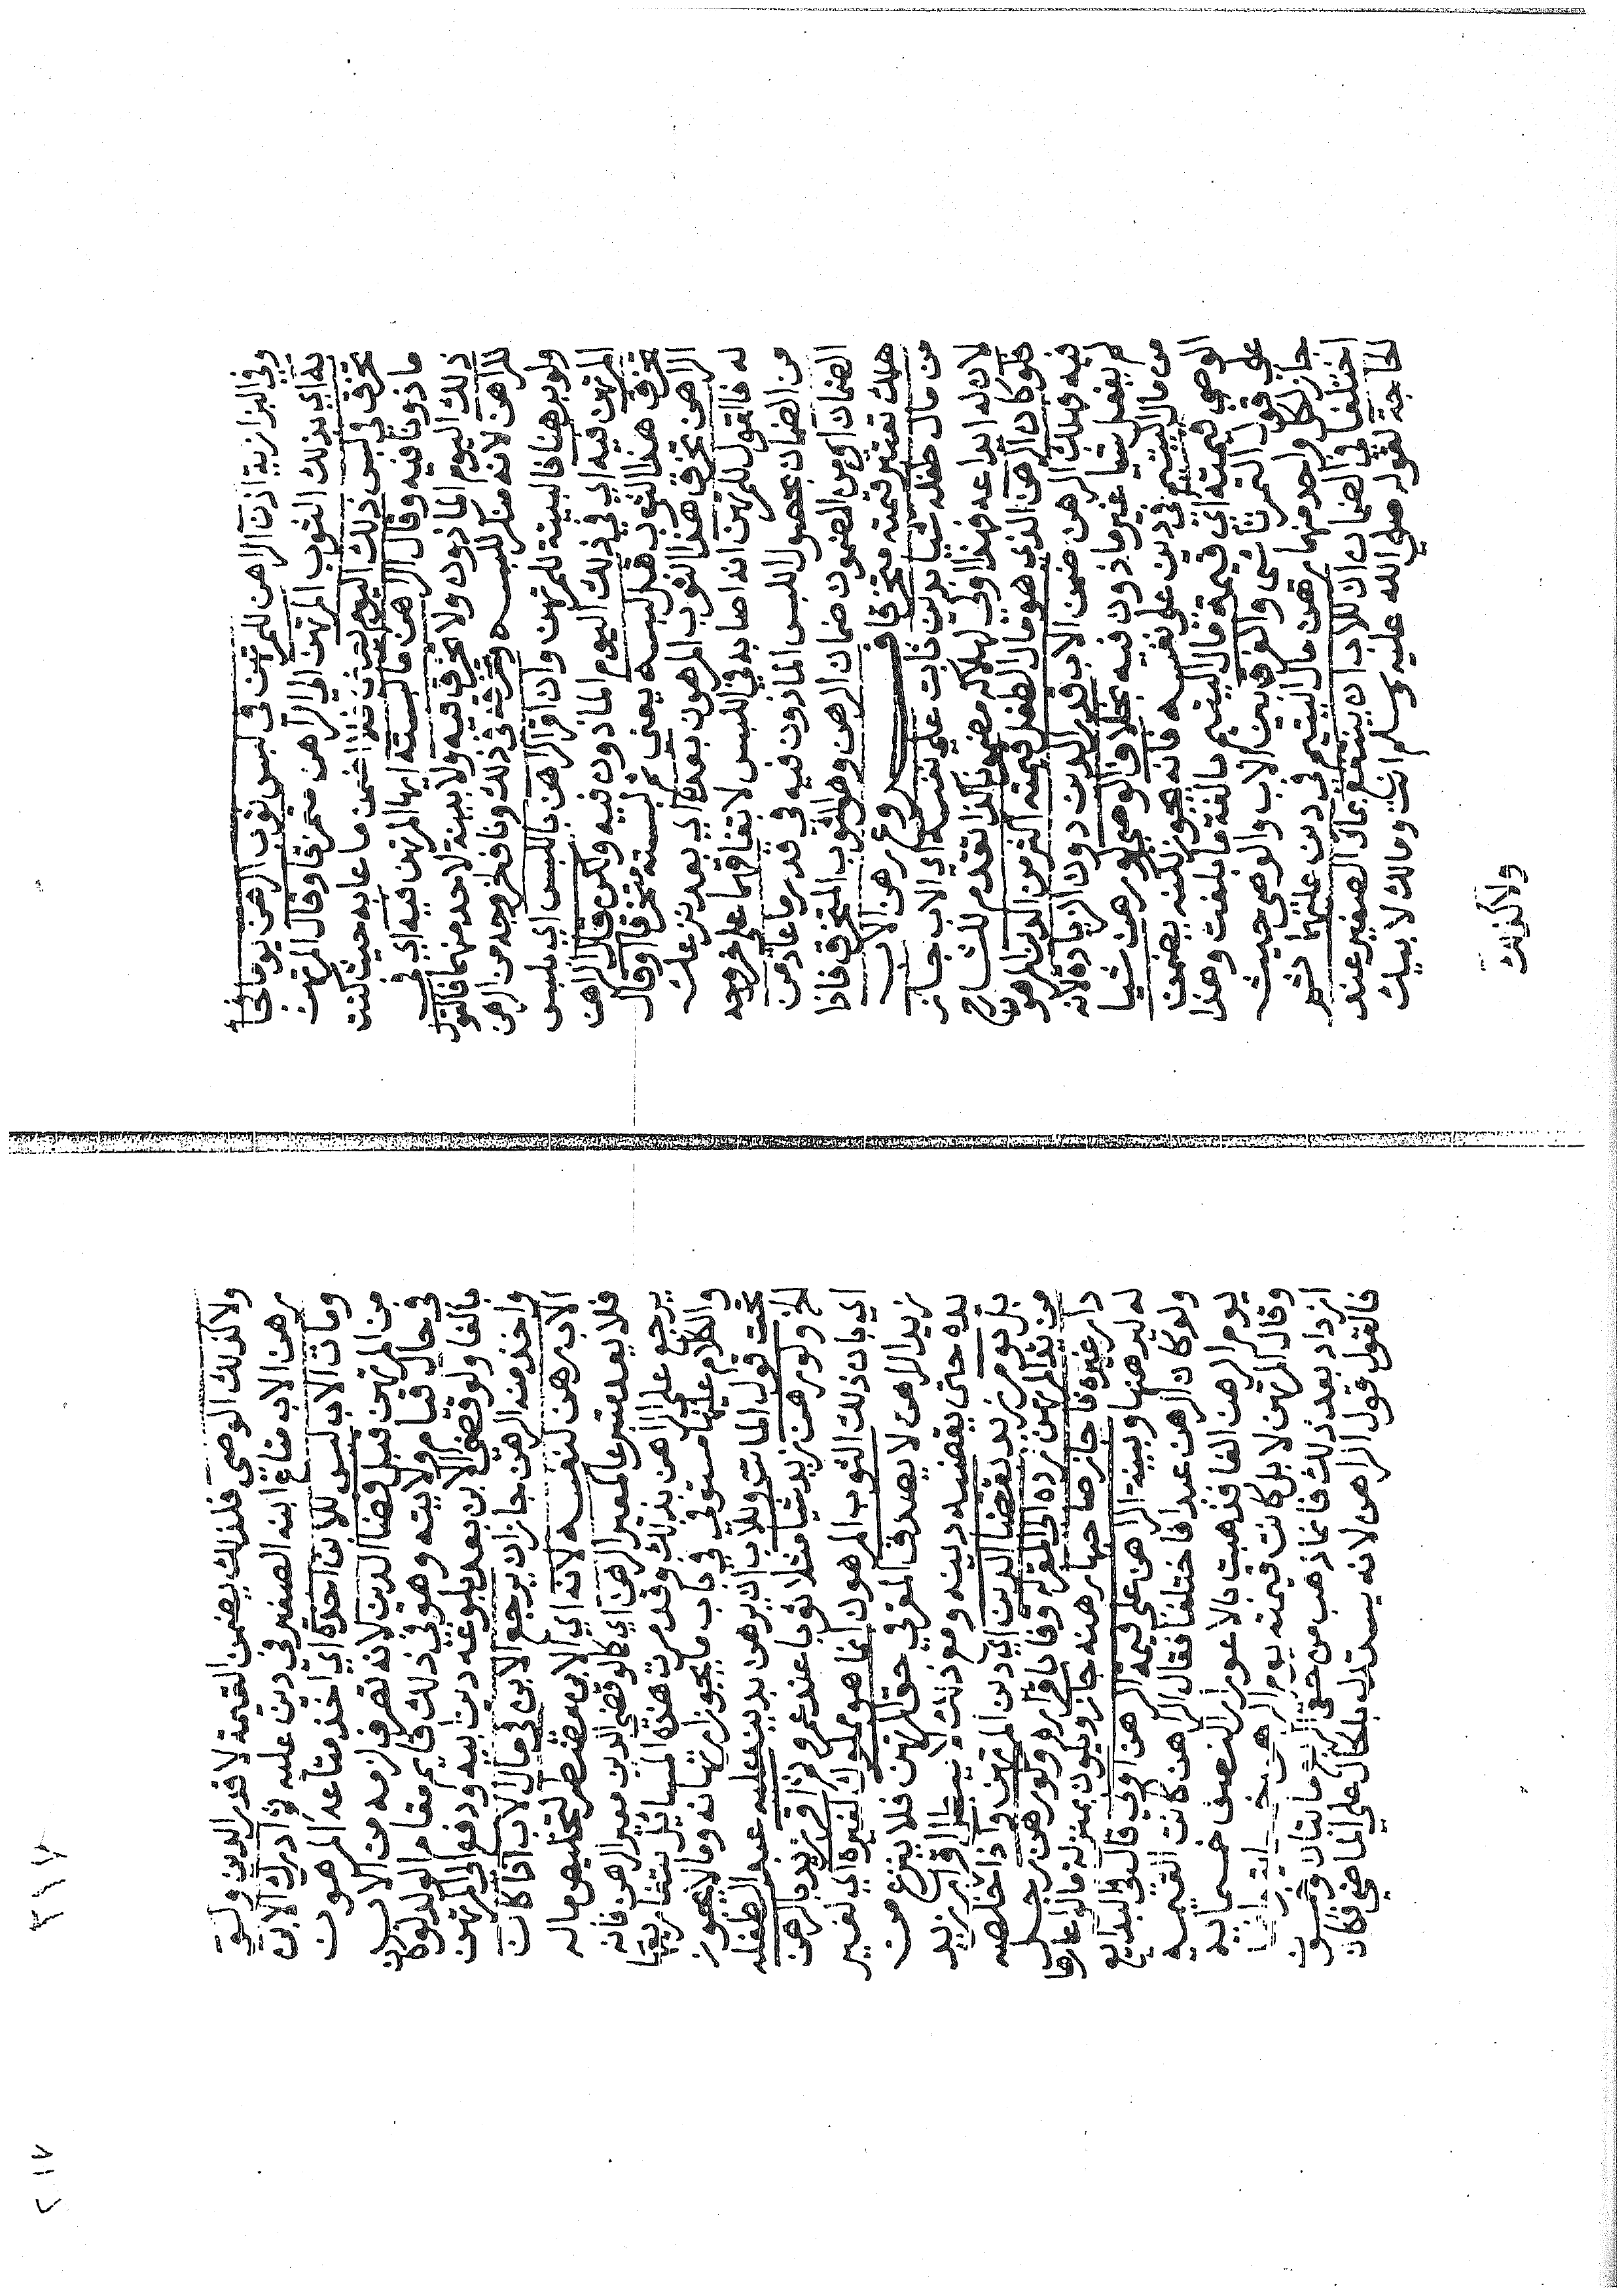 وفي البزازية اذن الراهن للمرتهن في لبس ثوب الرهن يوما فجا
به اي بذلك الثوب المرتهن الي الراهن متخرقا وقال المرتهن
تخرق في لبس ذلك اليوم ما عابه حيث كنت
ماذونا فيه وقال الراهن ما لبسته ايها المرتهن فيه اي في
ذلك اليوم الماذون ولا تخرق فيه ولا بينة لاحد منهما فالقول
للراهن لانه منكر للبسه وتخرقه في ذلك ونافي خروجه من الرهن
ولو برهنا فالبينة للمرتهن وان اقر الراهن باللبس اي بلبس
المرتهن فيه اي في ذلك اليوم الماذون فيه ولكن قال الراهن
تخرق هذا الثوب قبل لبسه يعني ثم لبسته متخرقا او قال
الراهن تخرق هذا الثوب المرهون بعده اي بعد نزعك
له فالقول للمرتهن انه اصابه في اللبس لاتفاقهما علي خروجه
من الضمان بحصول اللبس الماذون فيه في قدر ما عاد من
الضمان اي من المضمون ضمان الرهن وهو الثوب المتخرق فاذا
هلك تعتبر قيمته متخرقا فروع رهن الاب
من مال طفله شيا بدين ثابت علي نفسه اي الاب جايز
لان له ايداعه فهذا اولي لهلاكه مضمونا كذا تقدم للشارح
فلو كان الرهن الذي هو مال الطفل قيمته اكثر من الدين المرهون
فيه فهلك الرهن ضمن الاب قدر الدين دون الزيادة لانه
لم يفعل شيا غير ماذون فيه بخلاف الوصي لو رهن شيا
من مال اليتيم في دين علي نفسه فانه يجوز لكنه يضمن
الوصي قيمته اي قيمة مال اليتيم بالغة ما بلغت وهذا
علي قول التمرتاشي والفرق بين الاب والوصي حيث
جاز لكل واحد منهما رهن مال اليتيم في دين عليهما ثم
اختلفا في الضمان ان للاب ان ينتفع بمال الصغير عند
لحاجة لقوله صلي الله عليه وسلم انت ومالك لابيك
ولا كذلك
ولا كذلك الوصي فلذلك يضمن القيمة لا قدر الدين ولو
رهن الاب متاع ابنه الصغير في دين عليه و ادرك الابن
ومات الاب ليس للابن اخذه اي اخذ متاعه المرهون
من المرتهن قبل قضا الدين لانه تصرف لزمه من الاب
في حال قيام ولايته وهو في ذلك قايم مقام الولد لو كان
بالغا ولو قضي الابن بعد بلوغه دين ابيه ودفعه الي المرتهن
واخذ منه الرهن جاز ان يرجع الابن في مال الاب اذا كان
الاب رهن لنفسه لانه اي الابن مضطر لتخليص ماله
فلا يعد متبرعا كمعير الرهن اي كما لو قضي الدين معير الرهن فانه
يرجع علي الراهن بذلك وقد مرت هذه المسايل
والكلام عليها مستوفي في باب ما يجوز ارتهانه وما لا يجوز
تحت قول الماتن وللاب ان يرهن بدين عليه عبد الطفله
الخ ولو رهن زيد شيا مثلا ثوبا عند عمرو ثم اقر زيد بالرهن
اي بان ذلك الثوب المرهون انما هو مملوك لغيره اي لغير
زيد الراهن لا يصدق المقر في حق المرتهن فلا ينزع من
يده حتي يقضيه دينه ومع ذلك لا يبطل اقرار زيد
بل يومر زيد بقضا الدين اي دين المرتهن واذا خلصه
من يد المرتهن رده الي المقر له وفا باقراره ولو رهن رجل
دار غيره فاجاز صاحبها رهنه جاز ويكون بمنزلة ما لو اعارها
له ليرهنها وبينة الراهن علي قيمة الرهن اولي قال في البدايع
ولو كان الرهن عبدا فاختلفا فقال الراهن كانت القيمة
يوم الرهن الفا فذهبت بالاعورار النصف خمسماية
وقال المرتهن لا بل كانت قيمته يوم الرهن خمسماية وانما
ازداد بعد ذلك فانما ذهب من حقي الربع مايتان وخمسون
فالقول قول الراهن لانه يستدل بالحال علي الماضي فكان
٢١٧